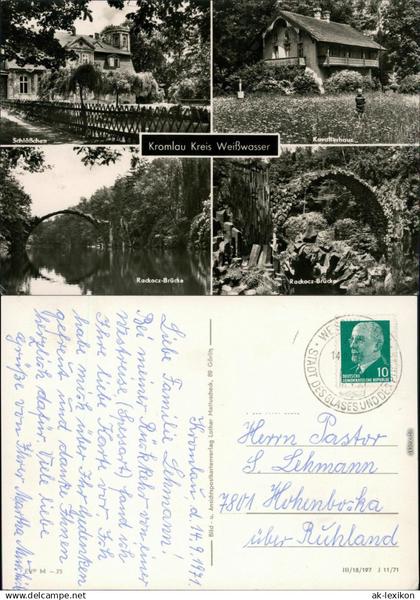 Schlößchen
Kavalierhaus
Kromlau Kreis Weißwasser
Rackocz-Brücke
Rackocz-Brücke
Kromlau d. 14.9.1971
Liebe Familie Lehmann!
Bei meiner Rückkehr von einer
reise (Spessart) fand ich
Ihre liebe Karte vor. Ich
habe mich über Ihr Gedenken
gefreut und danke Ihnen
herzlich dafür. Viele liebe
Grüße von Ihrer Martha
Bild- u. Ansichtspostkartenverlag Lothar Hartusbeck, 89 Görlitz
STADT DES GLASES UND DER
DEUTSCHE
DEMOKRATISCHE REPUBLIK
10
Herrn Pastor
S. Lehmann
7801 Hohenbocka
über Ruhland
III/18/197 J 11/71
ak-lexikon.com